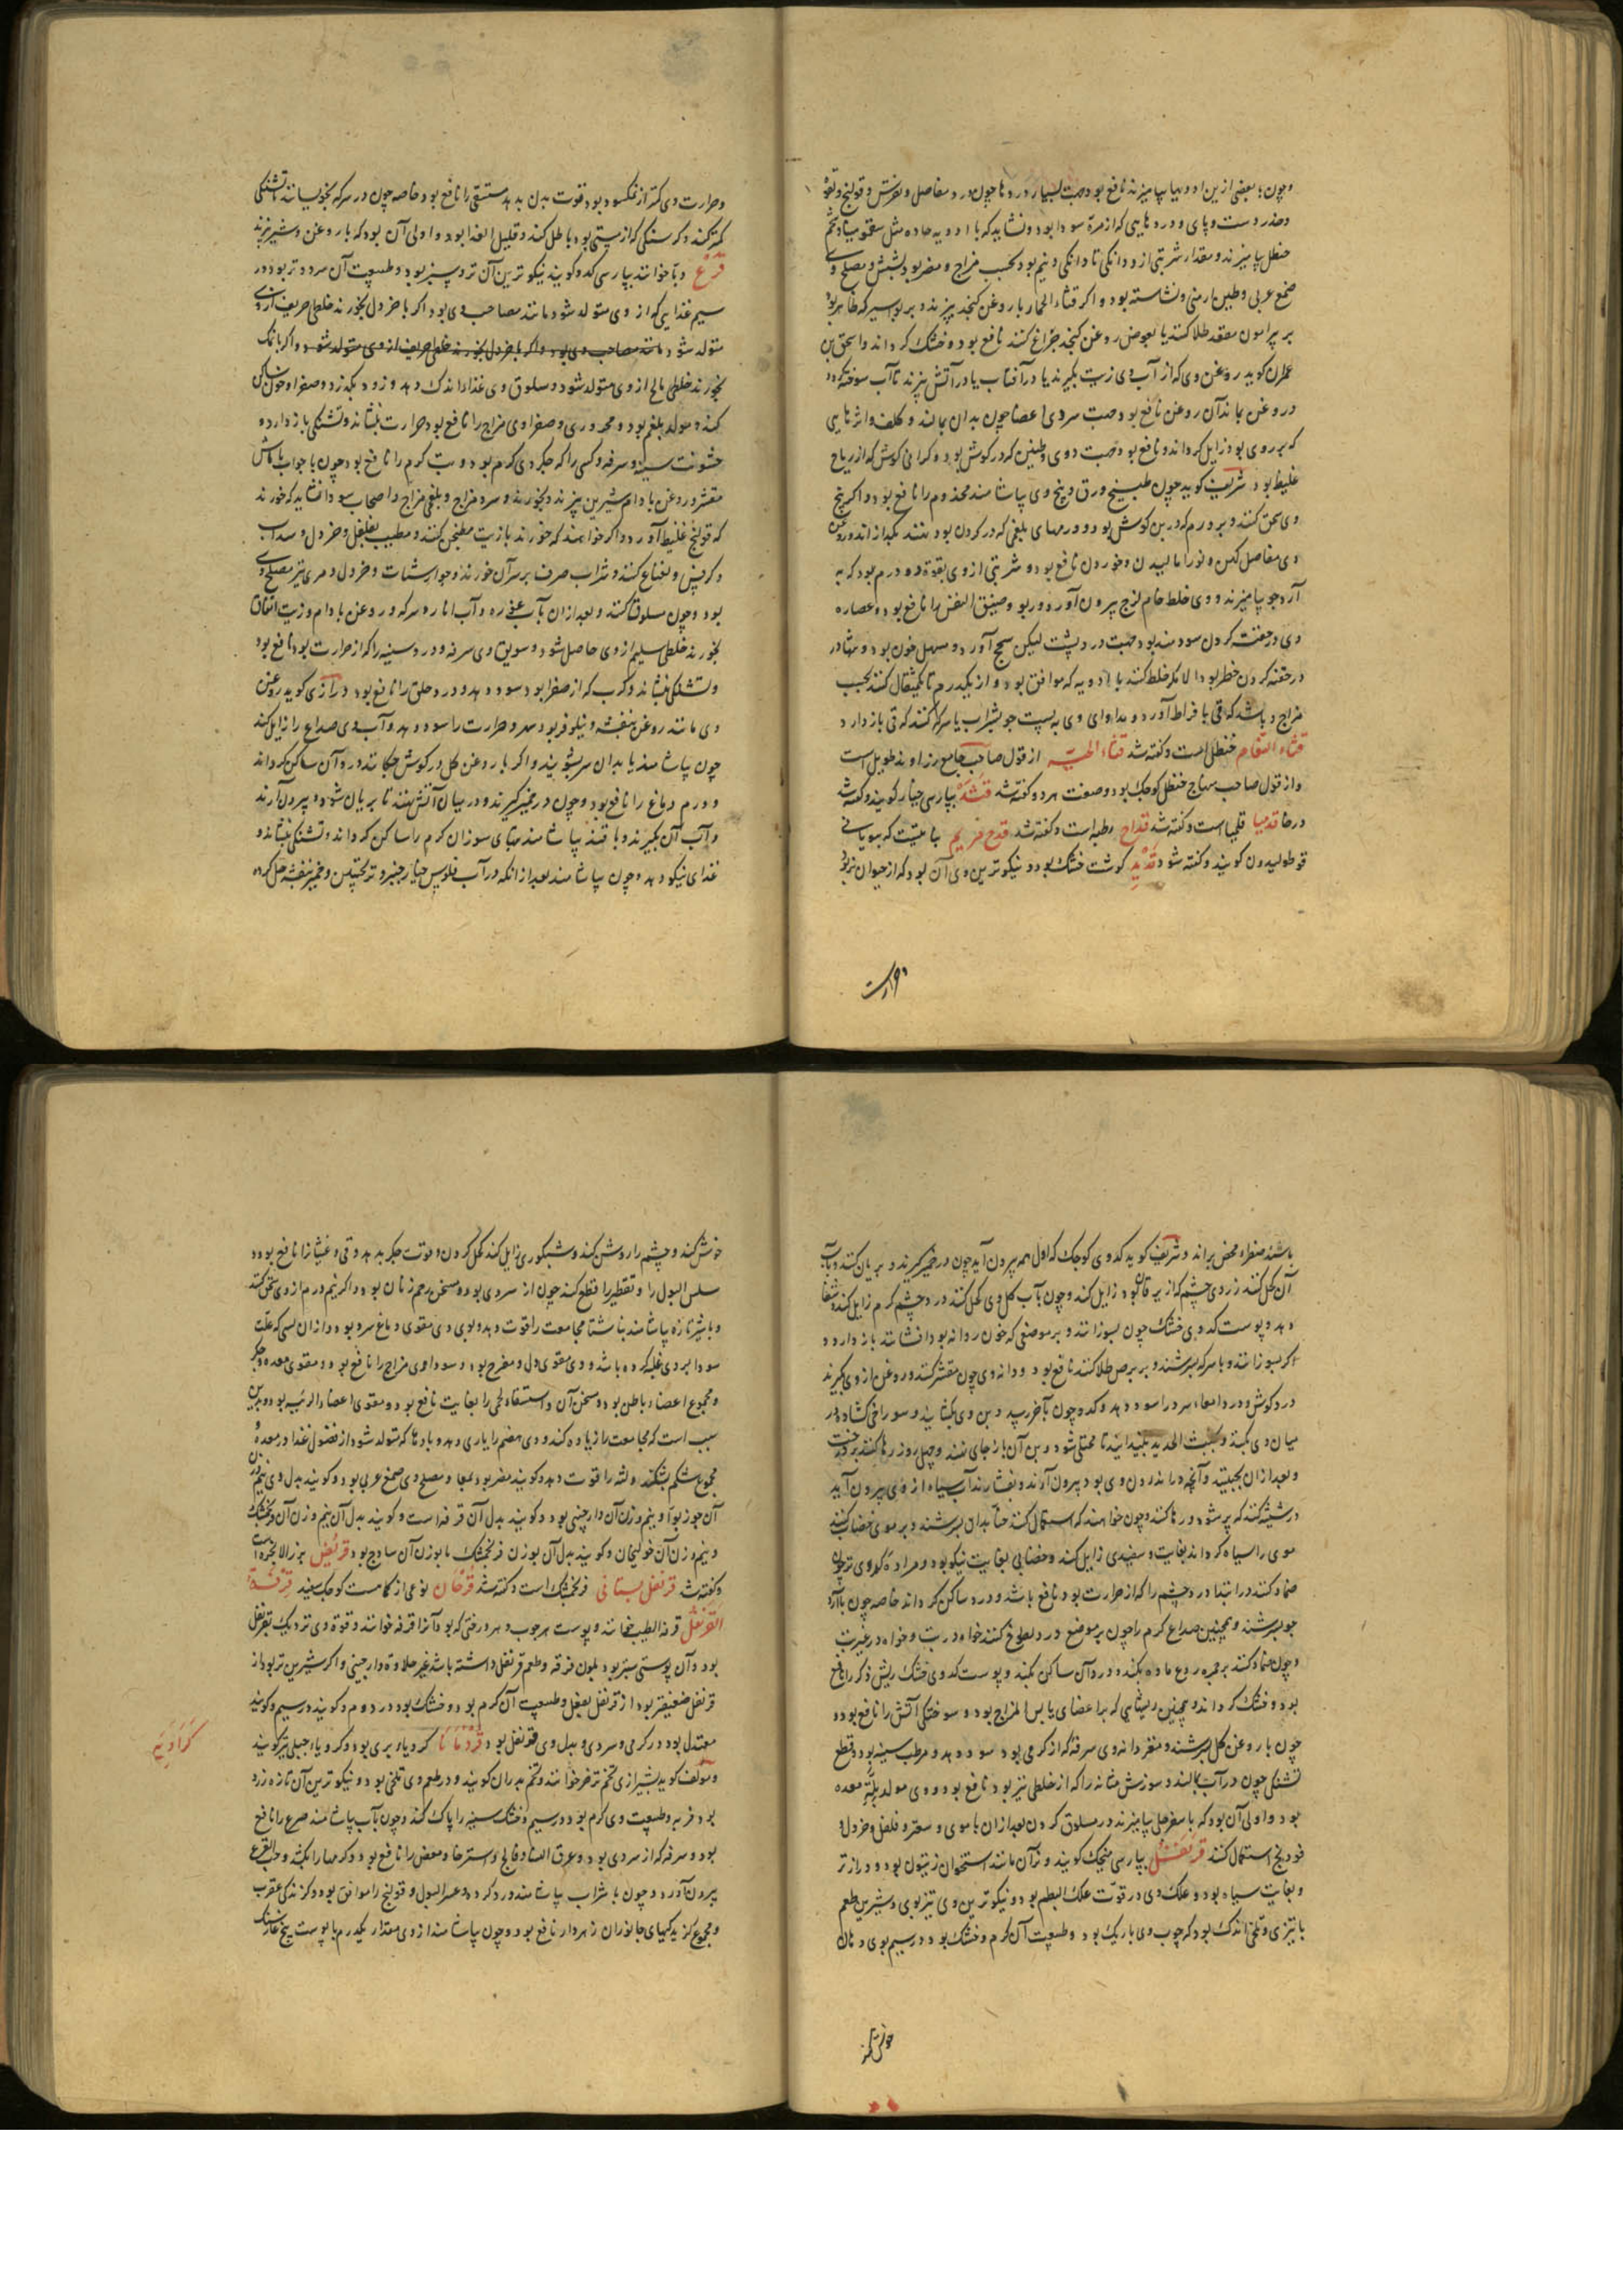 وچون بعضی ازین ادویها بیامیزند نافع بود جهت بسیار دردها چون درد مفاصل و نقرس و قولنج و لقوه
وخدر دست و پای و دردهایی که از مرة سودا بود و نشاید که با ادویه حاده مثل سقمونیا و شحم
حنظل بیامیزند و مقدار شربتی از دو دانکی تا دانکی و نیم بود بحسب مزاج و مضر بود بشش و مصلح وی
صمغ عربی و طین ارمنی و نشاسته بود و اکر قثاء الحمار با روغن کنجد بپزند و بر بواسیر که ظاهر بود
بر پرامون مقعد طلا کنند یا بعوض روغن کنجد چراغ کنند نافع بود و خشک کرداند و اسحق بن
عمران کوید روغن وی که از آب وی زیت بکیرند یا در آفتاب یا در آتش بپزند تا آب سوخته کردد
و روغن بماند آن روغن نافع بود جهت سردی اعضا چون بدان بمالند و کلف و اثرهایی
که بر روی بود زایل کرداند و نافع بود جهت دوی و طنین که در کوش بود و کرانی کوش که از ریاح
غلیظ بود شریف کوید چون طبیخ ورق و بیخ وی بیاشامند مجذوم را نافع بود و اکر بیخ
وی سحق کنند و بر ورم که در بن کوش بود و ورمهای بلغمی که در کردن بود نهند بکدازاند و روغن
وی مفاصل کهن و نو را مالیدن و خوردن نافع بود و شربتی از وی بقوة دو درم بود که به
آرد جو بیامیزند و وی خلط خام لزج بیرون آورد و ربو و ضیق النفس را نافع بود و عصاره
وی در حقنه کردن سودمند بود جهت درد پشت لیکن سحج آورد و مسهل خون بود و تنها در
در حقنه کردن خطر بود الا مکر خلط کنند با ادویه که موافق بود و از یکدرم تا یکمثقال کنند بحسب
مزاج و باشد که قی بافراط آورد و مداوای وی به پست جو بشراب یا سرکه کنند که قی باز دارد و
قثاء النعام حنظل است و کفته شد قثاء الحیه از قول صاحب جامع زراوند طویل است
و از قول صاحب منهاج حنظل کوچک بود و صفت هر دو کفته شد قثد بپارسی خیار کویند و کفته شد
در خا قدمیا قلیمیا است و کفته شد قداح رطبه است و کفته شد قدح مریم نباتیست که بیونانی
قوطولیدون کویند و کفته شود قدید کوشت خشک بود و نیکوترین وی آن بود که از حیوان فربه
وحرارت
وحرارت وی کمتر از نمکسود بود و قوت بدن بدهد مستسقی را نافع بود خاصه چون در سرکه بخویسانند تشنکی
کمتر کند و کرسنکی که از پستی بود باطل کند و قلیل الغذا بود و اولی آن بود که با روغن و شیر پزند
قرع دبا خوانند بپارسی کدو کویند نیکوترین آن تر و سبز بود و طبیعت آن سرد و تر بود در
سیم غذایی که از وی متولد شود مانند مصاحب وی بود اکر با خردل بخورند خلطی حریف از وی
متولد شود مانند مصاحب وی بود و اکر با خردل بخورند خلطی حریف از وی متولد شود و اکر با نمک
بخورند خلطی مالح از وی متولد شود و سلوق وی غذا اندک دهد و زود بکذرد و صفرا و خون ساکن
کننده مولد بلغم بود و محروری و صفراوی مزاج را نافع بود حرارت بنشاند و تشنکی باز دارد و
خشونت سینه و سرفه و کسی را که جکر وی کرم بود و تب کرم را نافع بود چون با جو آب یا ماش
مقشر و روغن بادام شیرین بپزند و بخورند و سرد مزاج و بلغمی مزاج و اصحاب سودا نشاید که خورند
که قولنج غلیظ آورد و اکر خواهند که خورند با زیت مطجن کنند و مطیب بفلفل و خردل و سداب
و کرفس و نعناع کنند و شراب صرف بر سر آن خورند و جوارشات و خردل و مری نیز مصلح وی
بود و چون مسلوق کنند و بعد از آن با آب غوره و آب انار و سرکه و روغن بادام و زیت انفاق
بخورند خلطی سلیم از وی حاصل شود و سویق وی سرفه و درد سینه را که از حرارت بود نافع بود
و تشنکی بنشاند و کرب که از صفرا بود سود دهد و درد حلق را نافع بود و رازی کوید روغن
وی مانند روغن بنفشه و نیلوفر بود سهر و حرارت را سود دهد و آب وی صداع را زایل کند
چون بیاشامند یا بدان سر بشویند و اکر با روغن کل در کوش چکانند درد آن ساکن کرداند
و ورم دماغ را نافع بود و چون در خمیر کیرند و در میان آتش نهند تا بریان شود و بیرون آرند
و آب آن بکیرند و با قند بیاشامند تبهای سوزان کرم را ساکن کرداند و تشنکی بنشاند و
غذای نیکو دهد و چون بیاشامند بعد از آنکه در آب فلوس خیار چنبر و ترنجبین و خمیر بنفشه حل کرده
باشند صفراء محض براند و شریف کوید کدوی کوچک که اول همه بیرون آید چون در خمیر کیرند و بریان کنند و بآب
آن کحل کنند زردی چشم که از یرقان بود زایل کند و چون بآب کل وی کحل کنند درد چشم کرم زایل کند و شفا
دهد و پوست کدوی خشک چون بسوزانند و بر موضعی که خون روانه بود افشانند باز دارد و
اکر بسوزانند و با سرکه بسرشند و بر برص طلا کنند نافع بود و دانه وی چون مقشر کنند و روغن از وی بکیرند
درد کوش و درد امعاء سرد را سود دهد و کدو چون بآخر رسید و بن وی بکشایند و سوراخی کشاده در
میان وی بکنند و بخبث الحدید بیندایند تا ممتلی شود و بن آن باز جای نهند و چهل روز رها کنند بر درخت
و بعد از آن بجنبند و آنچه در اندرون وی بود بیرون آرند و بفشارند آب سیاه از وی بیرون آید
در شیشه کنند که پر شود و رها کنند و چون خواهند که استعمال کنند حنا بدان بسرشند و بر موی خضاب کنند
موی را سیاه کرداند بغایت و سفیدی زایل کند و خضابی بغایت نیکو بود و مراده کدوی تر چون
ضماد کنند در ابتدا درد چشم را که از حرارت بود نافع باشد و درد ساکن کرداند خاصه چون با آرد
جو بسرشند و همچنین صداع کرم را چون بر موضع درد لطوخ کنند خواه در تب و خواه در غیر تب
و چون ضماد کنند بر جمره ردع ماده بکند و درد آن ساکن بکند و پوست کدوی خشک ریش ذکر را نافع
بود و خشک کرداند و همچنین ریشهایی که بر اعضای یابس المزاج بود و سوختکی آتش را نافع بود و
چون با روغن کل بسرشند و مغز دانه وی سرفه که از کرمی بود سود دهد و مرطب سینه بود و قطع
تشنکی چون در آب بمالند و سوزش مثانه را که از خلطی تیز بود نافع بود و وی مولد بلة معده
بود و اولی آن بود که با سفرجل بیامیزند در مسلوق کردن بعد از آن با مری و سعتر و فلفل و خردل و
فودنج استعمال کنند قرنفل بپارسی میخک کویند و نر آن مانند استخوان زیتون بود و درازتر
و بغایت سیاه بود و علک وی در قوت علک البطم بود و نیکوترین وی تیزبوی و شیرین طعم
با تیزی و تلخی اندک بود که چوب وی باریک بود و طبیعت آن کرم و خشک بود در سیم بوی دهان
خوش کند
خوش کند و چشم را روشن کند و شبکوری زایل کند کحل کردن و قوت جکر بدهد و قی و غثیان را نافع بود و
سلس البول را و تقطیر را قطع کند چون از سردی بود و مسخن رحم زنان بود و اکر نیم درم از وی سحق کنند
و با شیر تازه بیاشامند بناشتا مجامعت را قوت دهد و بوی وی مقوی دماغ سرد بود و از آن کسی که علت
سودا بر وی غلبه کرده باشد و وی مقوی دل و مفرح بود و سوداوی مزاج را نافع بود و مقوی معده و جکر
و مجموع اعضاء باطن بود و مسخن آن و استسقاء لحمی را بغایت نافع بود و مقوی اعضاء الرئیسه بود و بدین
سبب است که مجامعت را زیاده کند و وی هضم را یاری دهد و بادها که متولد شود از فضول غذا در معده و
مجموع شکم بشکند و لثه را قوت دهد و کویند مضر بود بمعا و مصلح وی صمغ عربی بود و کویند بدل وی نیم وزن
آن جوزبوا و نیم وزن آن دارچینی بود و کویند بدل آن قرفه است و کویند بدل آن نیم وزن آن فرنجمشک
و نیم وزن آن خولنجان و کویند بدل آن بوزن فرنجمشک یا بوزن آن سادج بود قریض بزر الانجره است
و کفته شد قرنفل بستانی فرنجمشک است و کفته شد قرحان نوعی از کماست کوچک سفید قرفة
القرنفل قرفة الطیب خوانند و پوست هر چوب و هر درختی که بود آنرا قرفه خوانند و قوة وی نزدیک بقرنفل
بود و آن پوستی سبز بود بلون قرفه و طعم قرنفل داشته باشد بغیر حلاوة دارچینی و اکر شیرین تر بود از
قرنفل ضعیفتر بود از قرنفل بفعل و طبیعت آن کرم بود و خشک بود در دوم و کویند در سیم و کویند
معتدل بود در کرمی و سردی و بدل وی قرنفل بود قردمانا کرویاء بری بود و کرویاء جبلی نیز کویند
کراویه
و مؤلف کوید بشیرازی تخم ترخر خوانند و تخم بدران کویند و در طعم وی تلخی بود و نیکوترین آن تازه زرد
بود فربه و طبیعت وی کرم بود در سیم و خشک سینه را پاک کند و چون بآب بیاشامند صرع را نافع
بود و سرفه که از سردی بود و عرق النسا و فالج و استرخا و مغص را نافع بود و کرمها را بکشد و حب القرع
بیرون آورد و چون با شراب بیاشامند درد کرده و عسر البول و قولنج را موافق بود و کزندکی عقرب
و مجموع کزیدکیهای جانوران زهردار نافع بود و چون بیاشامند از وی مقدار یکدرم با پوست بیخ غار سنک